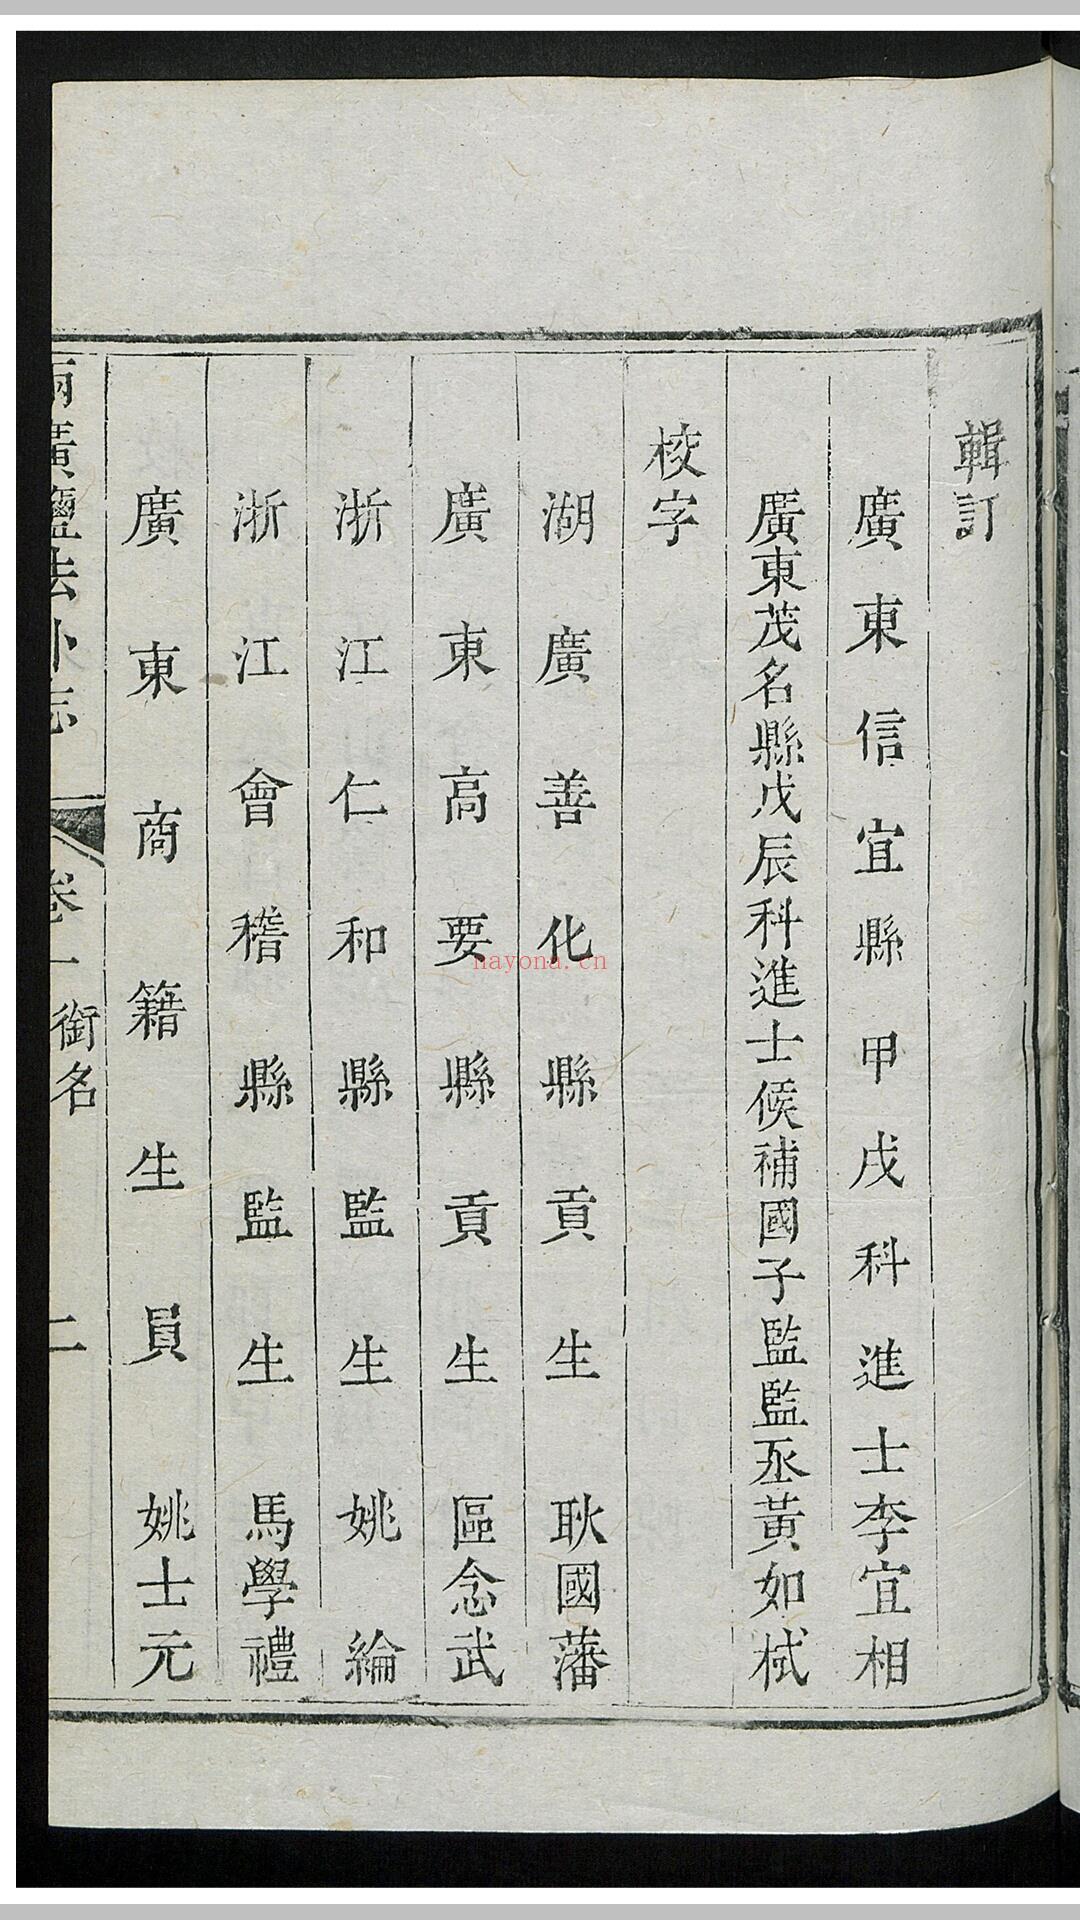 輯訂
廣東信宜縣甲戌科進士李宜相
廣東茂名縣戊辰科進士候補國子監監丞黃如栻
校字
湖廣善化縣貢生耿國藩
廣東高要縣貢生區念武
浙江仁和縣監生姚綸
浙江會稽縣監生馬學禮
廣東商籍生員姚士元
兩廣鹽法外志 卷一 銜名 二
nayona.cn